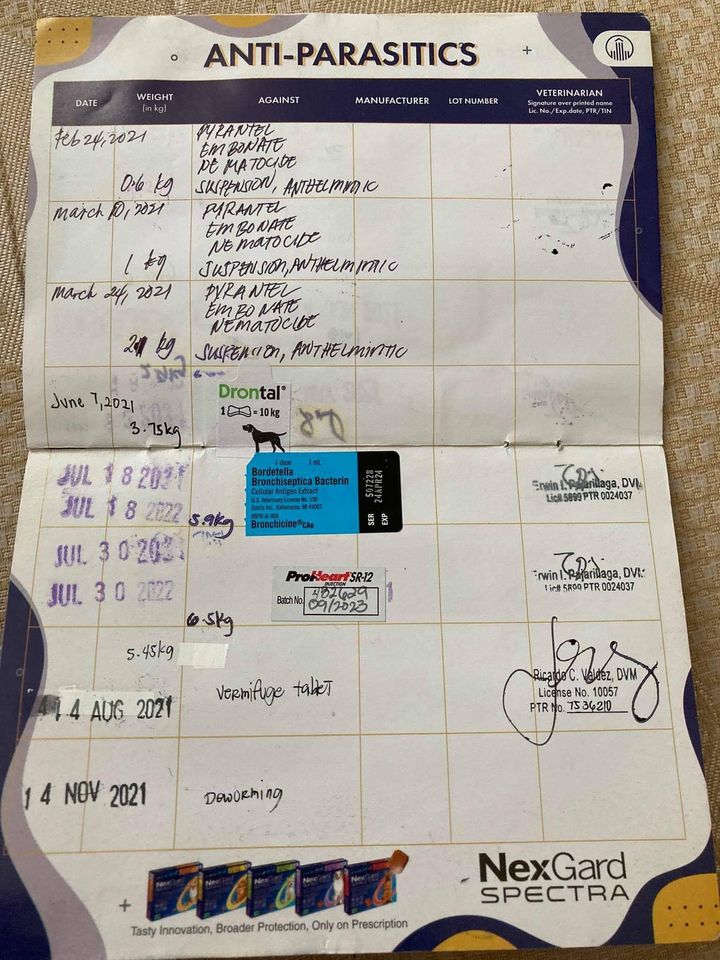 ANTI-PARASITICS
DATE
WEIGHT
(in kg)
AGAINST
MANUFACTURER
LOT NUMBER
VETERINARIAN
Signature over printed name
Lic. No./Exp.date, PTR/TIN
Feb 24, 2021
0.6 kg
PYRANTEL
EMBONATE
NEMATOCIDE
SUSPENSION, ANTHELMINTIC
March 10, 2021
1 kg
PYRANTEL
EMBONATE
NEMATOCIDE
SUSPENSION, ANTHELMINTIC
March 24, 2021
2 kg
PYRANTEL
EMBONATE
NEMATOCIDE
SUSPENSION, ANTHELMINTIC
June 7, 2021
3.75kg
Drontal®
1 = 10 kg
JUL 18 2021
JUL 18 2022
5.9kg
1 dose 1 mL
Bordetella
Bronchiseptica Bacterin
Cellular Antigen Extract
U.S. Veterinary License No. 190
Zoetis Inc., Kalamazoo, MI 49007
Bronchicine® CAe
SER 507228
EXP 24APR24
Erwin I. Pajarillaga, DVM
Lic# 5899 PTR 0024037
JUL 30 2021
JUL 30 2022
6.5kg
ProHeart® SR-12
INJECTION
Batch No. 482629
09/2023
Erwin I. Pajarillaga, DVM
Lic# 5899 PTR 0024037
5.45kg
14 AUG 2021
Vermifuge tablet
Ricardo C. Valdez, DVM
License No. 10057
PTR No. 7536210
14 NOV 2021
Deworming
NexGard
SPECTRA
Tasty Innovation, Broader Protection, Only on Prescription